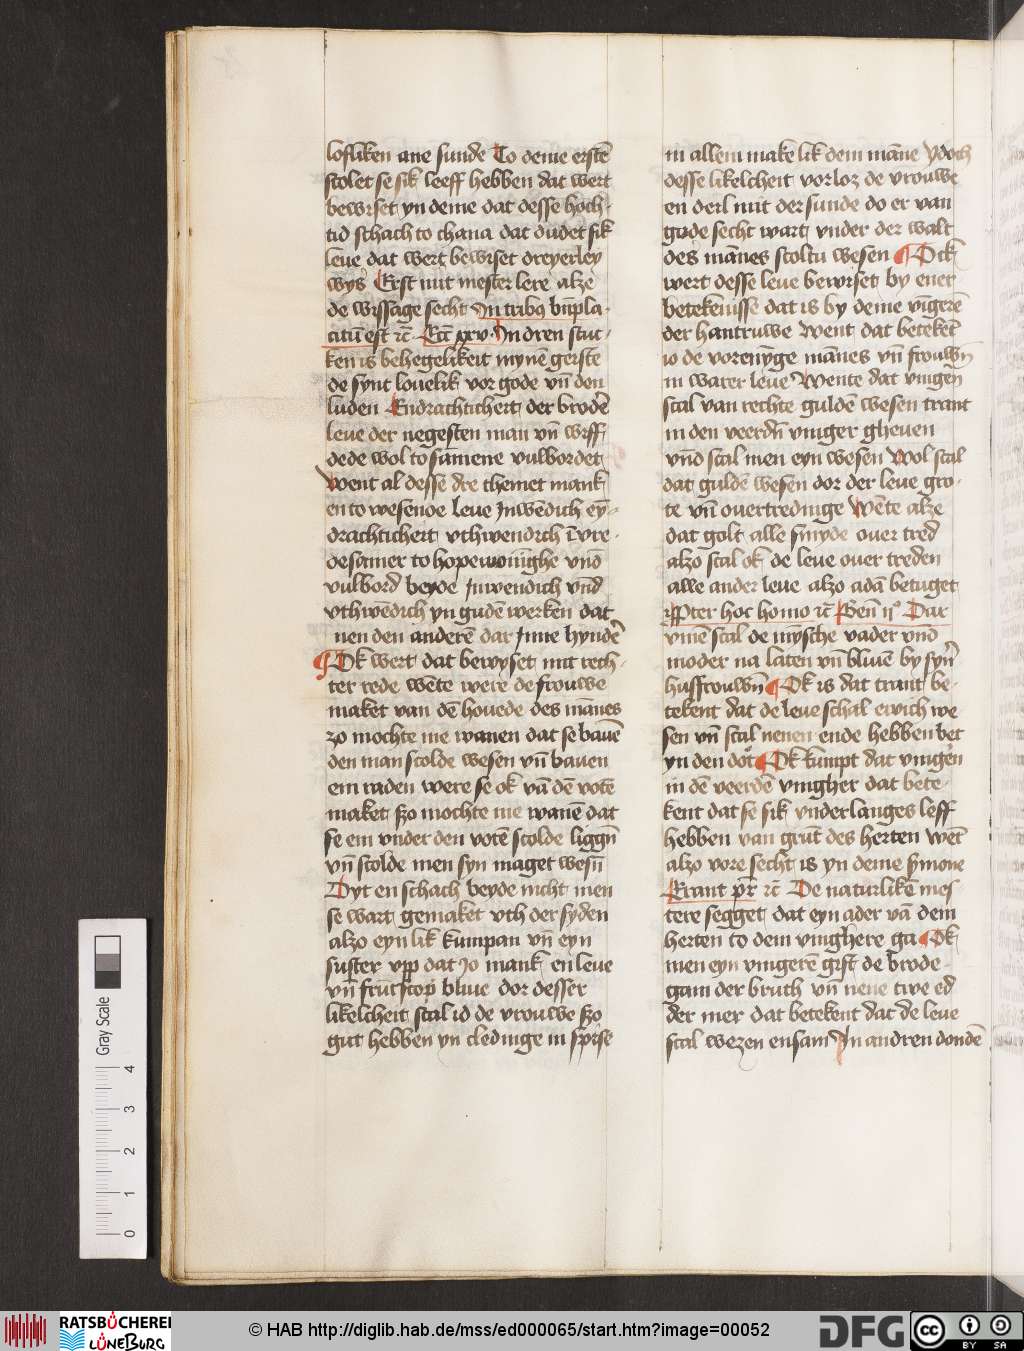 lofliken ane sunde To deme erstē
scolet se sik leeff hebben dat wert
bewiset yn deme dat desse hoch-
tid schach to chana dat dudet sik
leue dat wert bewiset dreyerley
wys Erst mit mester lere alze
de wissage secht In tribus bn̄pla-
citū est ꝛc̄ Ecc̄ xxv. In dren stuc-
ken is behegelikeit mynē geiste
de synt louelik vor gode vn̄ den
luden Endrachticheit der brodē
leue der negesten man vn̄ wiff
dede wol to samene vulbordet
Went al desse dre themet mank
en to wesende leue Inwēdich ey-
drachticheit vthwendich
desamer to hopewoninghe vnd
vulbord beyde Inwendich vnd
vthwēdich yn gudē werken dat
nen den anderē dar Inne hyndē
Ok wert dat bewyset mit rech-
ter rede wēte were de frouwe
maket van dē houede des mānes
zo mochte me wanen dat se bauē
den man scolde wesen vn̄ bauen
em raden were se ok vā dē votē
maket szo mochte me wanē dat
se em vnder den votē scolde liggn̄
vn̄ scolde men syn maget wesn̄
Dyt en schach beyde nicht men
se wart gemaket vth der syden
alzo eyn lik kumpan vn̄ eyn
suster vpp dat jo mank en leue
vn̄ fruntscop bliue dor desser
likelcheit scal id de vrouwe szo
gut hebben yn cledinge in spise
in allem make lik dem māne ydoch
desse likelcheit vorloz de vrouwe
en deil mit der sunde do er van
gode secht wart vnder der walt
des mānes scoltu wesen Ok
wert desse leue bewiset by ener
betekenisse dat is by deme vingerē
der hantruwe went dat beteket
io de vorenynge mānes vn̄ frouwn̄
in warer leue Wente dat vingern̄
scal van rechte guldē wesen trant
in den veerdn̄ vniger gheuen
vnd scal men eyn wesen Wol scal
dat guldē wesen dor der leue gro-
te vn̄ ouertredinge Wēte alze
dat golt alle smyde ouer tred
alzo scal ok de leue ouer treden
alle ander leue alzo adā betuget
Propter hoc homo ꝛc̄ Gen̄ ii° Dar
vmē scal de mȳsche vader vnd
moder na laten vn̄ bliuē by syn̄
husfrouwn̄ Ok is dat trant be-
tekent dat de leue schal ewich we
sen vn̄ scal nenen ende hebben bet
yn den dot Ok kumpt dat vingern̄
in dē veerdē vingher dat bete-
kent dat se sik vnderlanges leff
hebben van grūt des herten wēt
alzo vore secht is yn deme s̄mone
Erant pr̄ ꝛc̄ De naturlikē mes
tere segget dat eyn ader vā dem
herten to dem vinghere ga Ok
men eyn vingerē gift de brode-
gam der bruth vn̄ nene twe ed
der mer dat betekent dat de leue
scal wezen ensam In andren dondē
Gray Scale
0 1 2 3 4
RATSBÜCHEREI
LÜNEBURG
© HAB http://diglib.hab.de/mss/ed000065/start.htm?image=00052
DFG
cc
BY SA